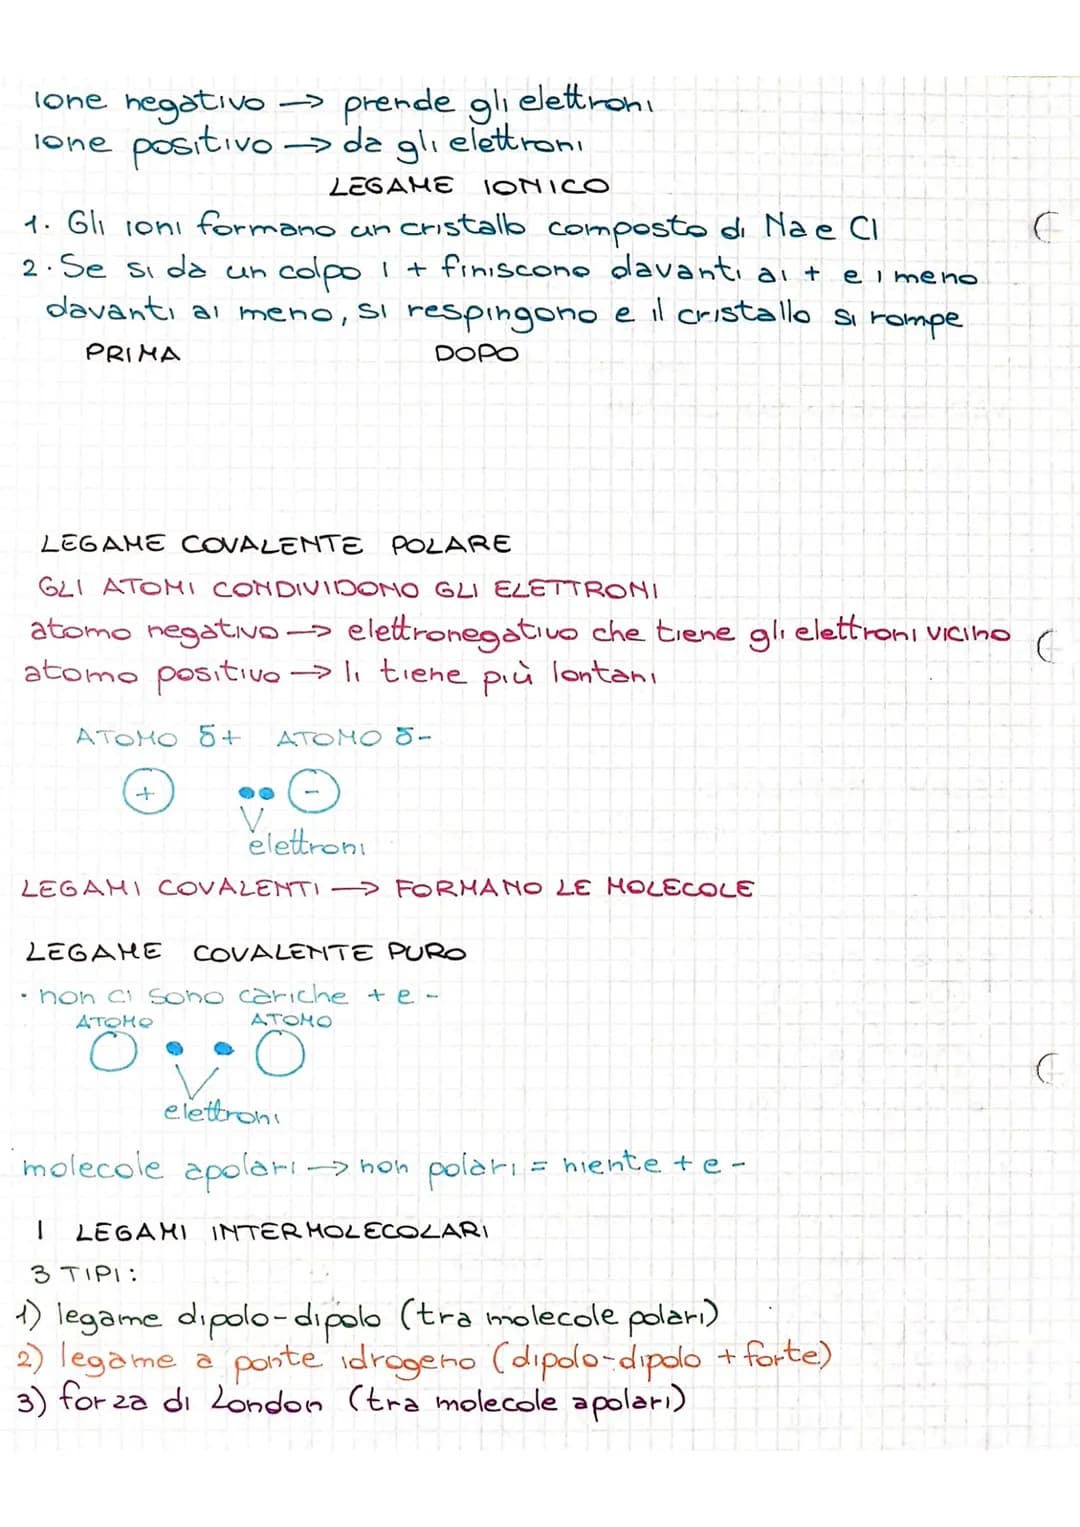 ione negativo → prende gli elettroni
ione positivo → da gli elettroni
LEGAME IONICO
1. Gli ioni formano un cristallo composto di Na e Cl
2. Se si dà un colpo i + finiscono davanti ai + e i meno
davanti ai meno, si respingono e il cristallo si rompe
PRIMA DOPO
LEGAME COVALENTE POLARE
GLI ATOMI CONDIVIDONO GLI ELETTRONI
atomo negativo → elettronegativo che tiene gli elettroni vicino
atomo positivo → li tiene più lontani
ATOMO δ+ ATOMO δ-
+ -
elettroni
LEGAMI COVALENTI → FORMANO LE MOLECOLE
LEGAME COVALENTE PURO
• non ci sono cariche + e -
ATOMO ATOMO
elettroni
molecole apolari → non polari = niente + e -
I LEGAMI INTERMOLECOLARI
3 TIPI:
1) legame dipolo-dipolo (tra molecole polari)
2) legame a ponte idrogeno (dipolo-dipolo + forte)
3) forza di London (tra molecole apolari)